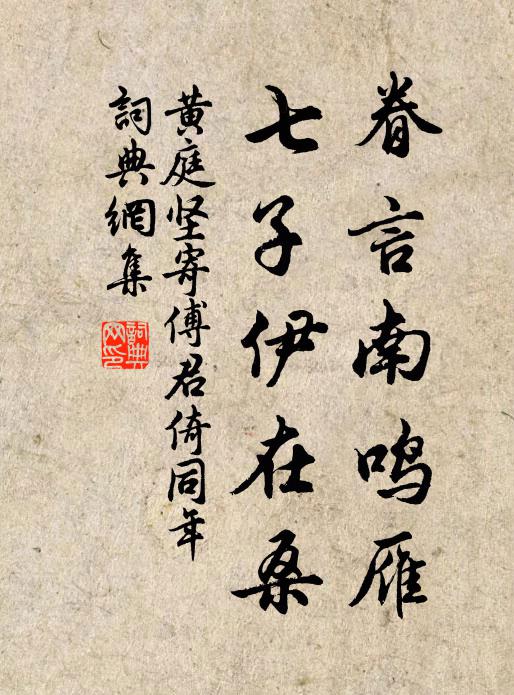 眷言南鸣雁
七子伊在桑
黄庭坚寄傅君倚同年
詞典網集
詞典网印